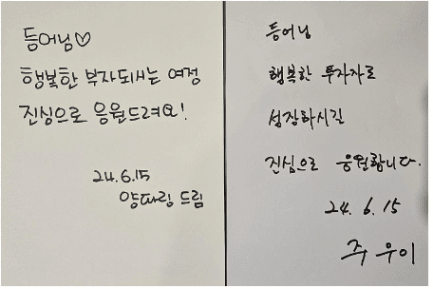 등어님♡
행복한 부자되시는 여정
진심으로 응원드려요!
24.6.15
양파링 드림
등어님
행복한 투자자로
성장하시길
진심으로 응원합니다.
24. 6. 15
주우이